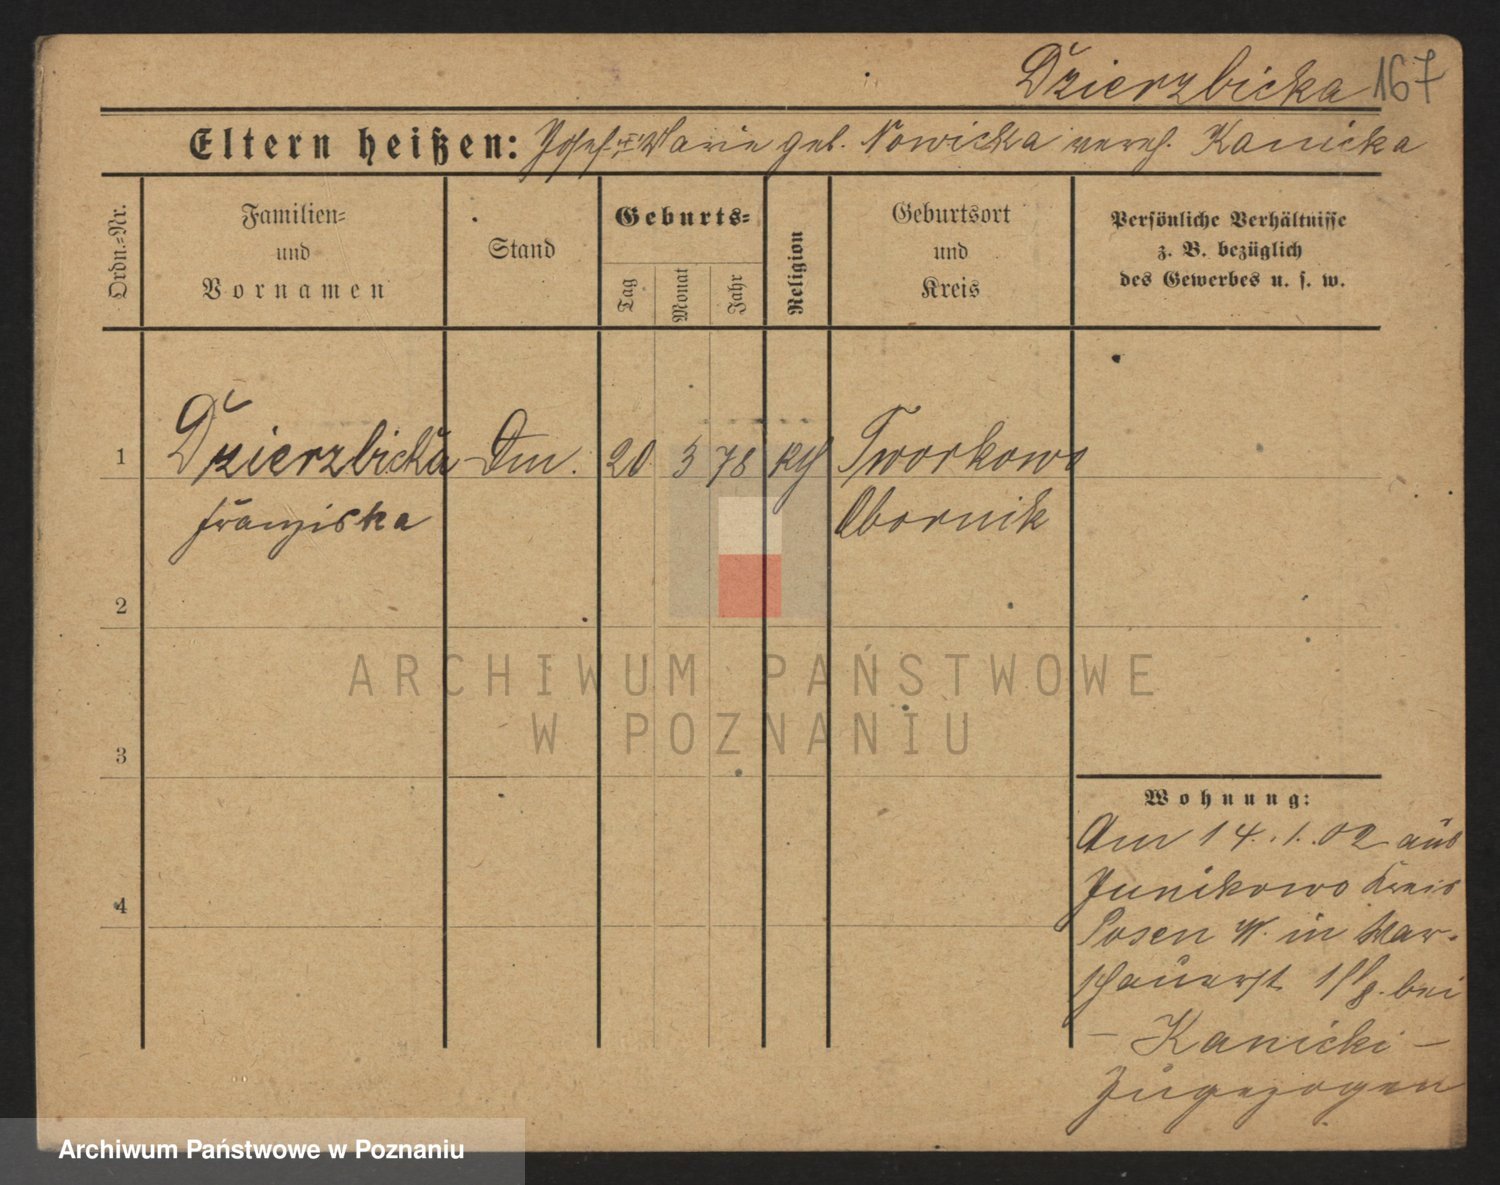 Dzierzbicka 167
Eltern heißen: Josef u. Marie geb. Nowicka vereh. Kanicka
Ordn.=Nr.
Familien=
und
Vornamen
Stand
Geburts=
Tag
Monat
Jahr
Religion
Geburtsort
und
Kreis
Persönliche Verhältnisse
z. B. bezüglich
des Gewerbes u. s. w.
1 Dzierzbicka 20 3 78 kth Tworkowo
Franziska Obornik
2
3
4
Wohnung:
Am 14. 1. 02 aus
Junikowo Kreis
Posen W. in War-
schauerst. bei
– Kanicki –
Zugezogen
ARCHIWUM PAŃSTWOWE
W POZNANIU
Archiwum Państwowe w Poznaniu